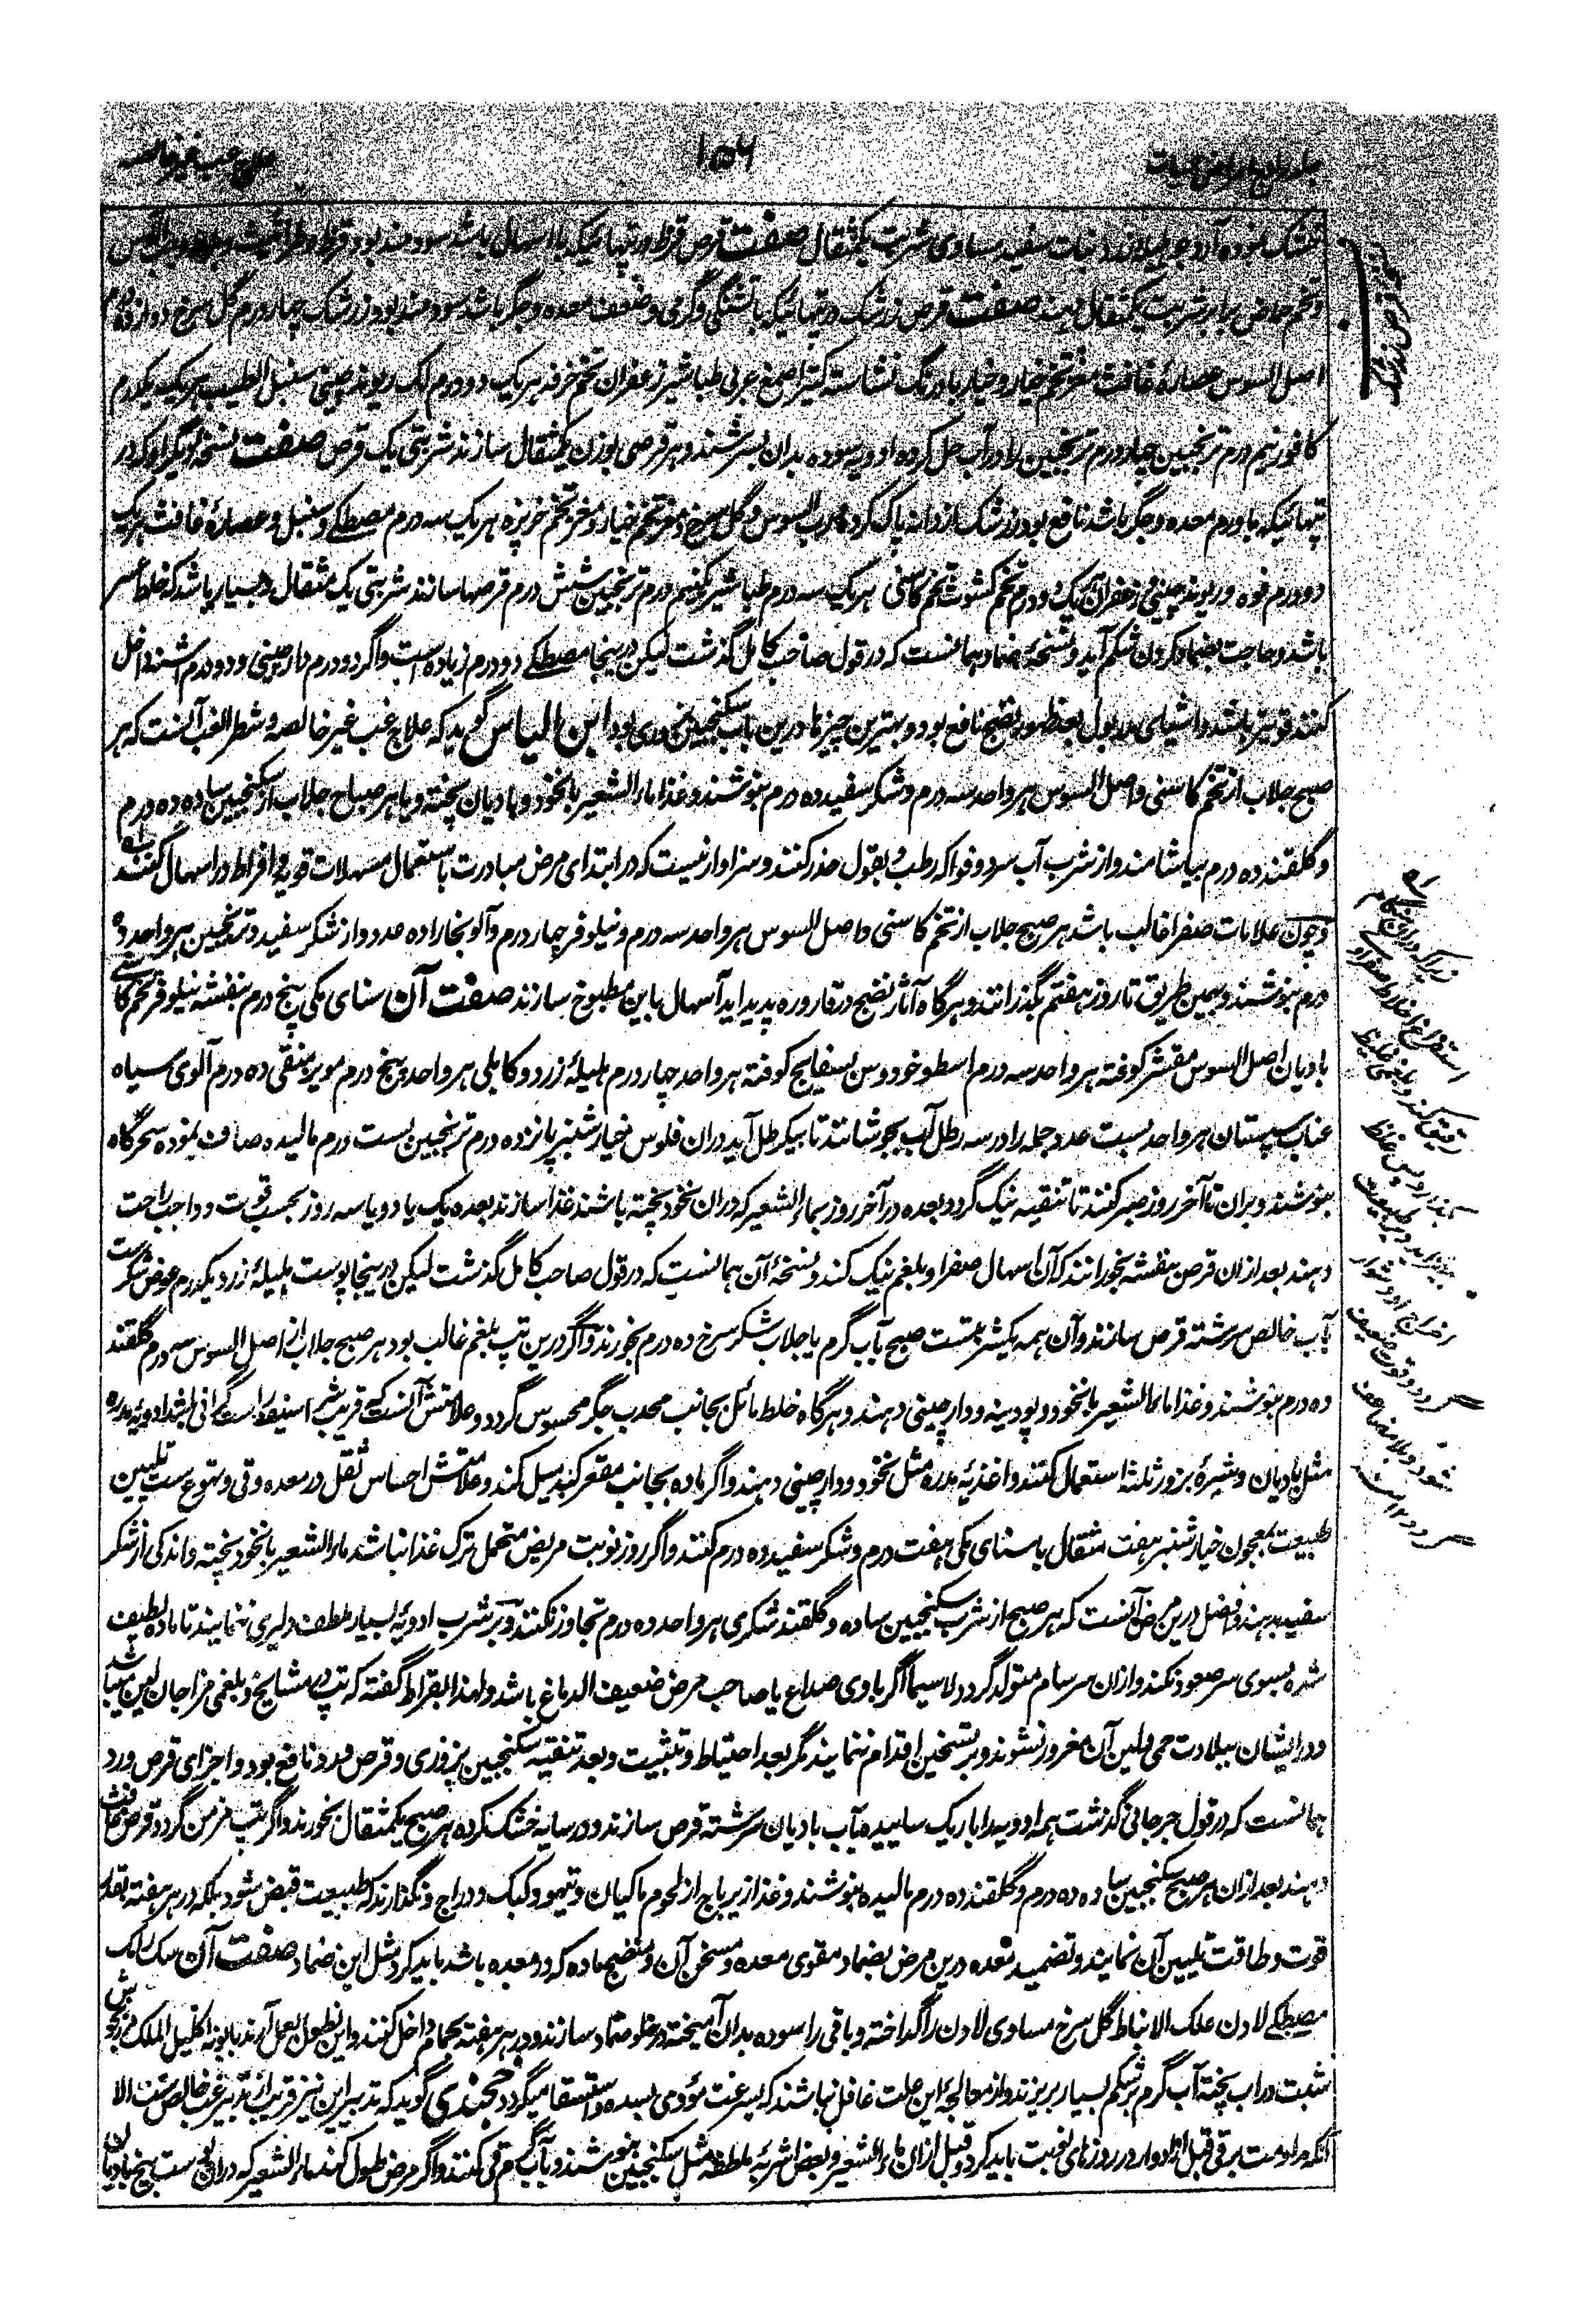 جلد رابع امراض حمیات
۱۵۶
علاج غب غیر خالصه
خشک نموده آرد جو نبات سفید مساوی شربت یکمثقال صفت قرص در تپهائیکه با اسهال باشد سودمند بود
و تخم حماض برابر شربت یکمثقال دهند صفت قرص زرشک در تپهائیکه با تشنگی و گرمی و ضعف معده و جگر باشد سودمند بود زرشک چهار درم گل سرخ دوازده درم
اصل السوس عصارهٔ غافث مغز تخم خیار و خیار بادرنگ نشاسته کتیرا صمغ عربی طباشیر زعفران تخم خرفه هر یک دو درم لک ریوند چینی سنبل الطیب هر یک یکدرم
کافور نیم درم ترنجبین چهار درم ترنجبین را در آب حل کرده ادویه سوده بدان بسرشند و هر قرصی بوزن یکمثقال سازند شربتی یک قرص صفت نسخه دیگر او که در
تپهائیکه با ورم معده و جگر باشد نافع بود زرشک از دانه پاک کرده رب السوس و گل سرخ و مغز تخم خیار و مغز تخم خرپزه هر یک سه درم مصطکے و سنبل و عصارهٔ غافث هر یک
دو درم فوه و ریوند چینی و زعفران هر یک دو درم تخم کشوث تخم کاسنی هر یک سه درم طباشیر یکنیم درم ترنجبین شش درم قرصها سازند شربتی یک مثقال و بسیار باشد که خلط عسر
باشد و حاجت بضماد کردن شکم آید و نسخهٔ ضماد همانست که در قول صاحب کامل گذشت لیکن درینجا مصطکے دو درم زیاده است و اگر دو درم دارچینی و دو درم اشنه داخل
کنند قویتر باشد و اشیای مدر بول بعد ظهور نضج نافع بود و بهترین چیزها درین باب سکنجبین بزوری بود ابن الیاس گوید که علاج غب غیر خالصه و شطر الغب آنست که هر
صبح جلاب از تخم کاسنی و اصل السوس هر واحد سه درم و شکر سفید ده درم بنوشند و غذا ماء الشعیر با نخود و بادیان پخته و یا هر صباح جلاب از سکنجبین ساده ده درم
و گلقند ده درم بیاشامند و از شرب آب سرد و فواکه رطب و بقول حذر کنند و سزاوار نیست که در ابتدای مرض مبادرت باستعمال مسهلات قویه و افراط در اسهال کنند
و چون علامات صفرا غالب باشد هر صبح جلاب از تخم کاسنی و اصل السوس هر واحد سه درم و نیلوفر چهار درم و آلو بخارا ده عدد و از شکر سفید و ترنجبین هر واحد ده
درم بنوشند و بهمین طریق تا روز هفتم بگذرانند و هرگاه آثار نضج در قاروره پدید آید اسهال باین مطبوخ سازند صفت آن سنای مکی پنج درم بنفشه نیلوفر تخم کاسنی
بادیان اصل السوس مقشر کوفته هر واحد سه درم اسطوخودوس بسفایج کوفته هر واحد چهار درم هلیلهٔ زرد و کابلی هر واحد پنج درم مویز منقی ده درم آلوی سیاه
عناب سپستان هر واحد بست عدد جمله را در سه رطل آب بجوشانند تا بیکرطل آید دران فلوس خیارشنبر پانزده درم ترنجبین بست درم مالیده صاف نموده سحرگاه
بنوشند و بران تا آخر روز صبر کنند تا تنقیه نیک گردد بعده در آخر روز بماء الشعیر که دران نخود پخته باشند غذا سازند بعده یک یا دو یا سه روز بحسب قوت و واجب راحت
دهند بعد ازان قرص بنفشه بخورانند که آن اسهال صفرا و بلغم نیک کند و نسخهٔ آن همانست که در قول صاحب کامل گذشت لیکن درینجا پوست هلیلهٔ زرد یکدرم عوض شکر ست
بآب خالص سرشته قرص سازند و آن همه یکشربتست صبح بآب گرم یا جلاب شکر سرخ ده درم بخورند و اگر درین تپ بلغم غالب بود هر صبح جلاب از اصل السوس سه درم گلقند
ده درم بنوشند و غذا ماء الشعیر با نخود و پودینه و دارچینی دهند و هرگاه خلط مائل بجانب محدب جگر محسوس گردد و علامتش آنست که قریب شراسیف راست گرانی باشد ادویهٔ مدره
مثل بادیان و شیرهٔ بزور ثلثه استعمال کنند و اغذیهٔ مدره مثل نخود و دارچینی دهند و اگر ماده بجانب مقعر کبد میل کند و علامتش احساس ثقل در معده و قی و تهوع ست تلیین
طبیعت بمعجون خیارشنبر هفت مثقال با سنای مکی هفت درم و شکر سفید ده درم کنند و اگر روز نوبت مریض متحمل ترک غذا نباشد ماء الشعیر با نخود پخته و اندکی از شکر
سفید بدهند و افضل درین مرض آنست که هر صبح از شرب سکنجبین ساده و گلقند شکری هر واحد ده درم تجاوز نکنند و بر شرب ادویهٔ بسیار ملطف دلیری ننمایند تا ماده لطیف
شده بسوی سر صعود نکند و ازان سرسام متولد گردد لاسیما اگر باوی صداع یا صاحب مرض ضعیف الدماغ باشد و لهذا بقراط گفته که تپ مشایخ و بلغمی مزاجان لین میباشد
و در ایشان ببلادت حمی و لین آن مغرور نشوند و بر تسخین اقدام ننمایند مگر بعد احتیاط و تثبیت و بعد تنقیه سکنجبین بزوری و قرص ورد نافع بود و اجزای قرص ورد
همانست که در قول جرجانی گذشت همه ادویه را باریک ساییده بآب بادیان سرشته قرص سازند و در سایه خشک کرده هر صبح یکمثقال بخورند و اگر تپ مزمن گردد قرص غافث
دهند بعد ازان هر صبح سکنجبین ساده ده درم و گلقند ده درم مالیده بنوشند و غذا زیرباج از لحوم ماکیان و تیهو و کبک و دراج و نگذارند که طبیعت قبض شود بلکه در هر هفته بقدر
قوت و طاقت تلیین آن نمایند و تضمید معده درین مرض بضماد مقوی معده و مسخن آن و منضج ماده که در معده باشد باید کرد مثل این ضماد صفت آن سک رامک
مصطکے لادن علک الانباط گل سرخ مساوی لادن را گداخته و باقی را سوده بدان آمیخته در خلو ضماد سازند و در هر هفته بحمام داخل کنند و این نطول بعمل آرند بابونه اکلیل الملک مرزنجوش
شبت در آب پخته آب گرم بر شکم بسیار بریزند و از معالجهٔ این علت غافل نباشند که بسرعت مؤدی بسده و استسقا میگردد خجندی گوید که تدبیر این نیز قریب از تدبیر غب خالص ست الا
آنکه مداومت بر قی قبل ادوار در روزهای نوبت باید کرد و قبل ازان ماء الشعیر و بعض اشربهٔ ملطفه مثل سکنجبین بنوشند و بآب گرم قی کنند و اگر مرض طول کند ماء الشعیر که دران پوست بیخ بادیان
قرص زرشک
زیراکه دران هنگام
استفراغ اخلاط صفراوی
رقیق کند و بلغم غلیظ